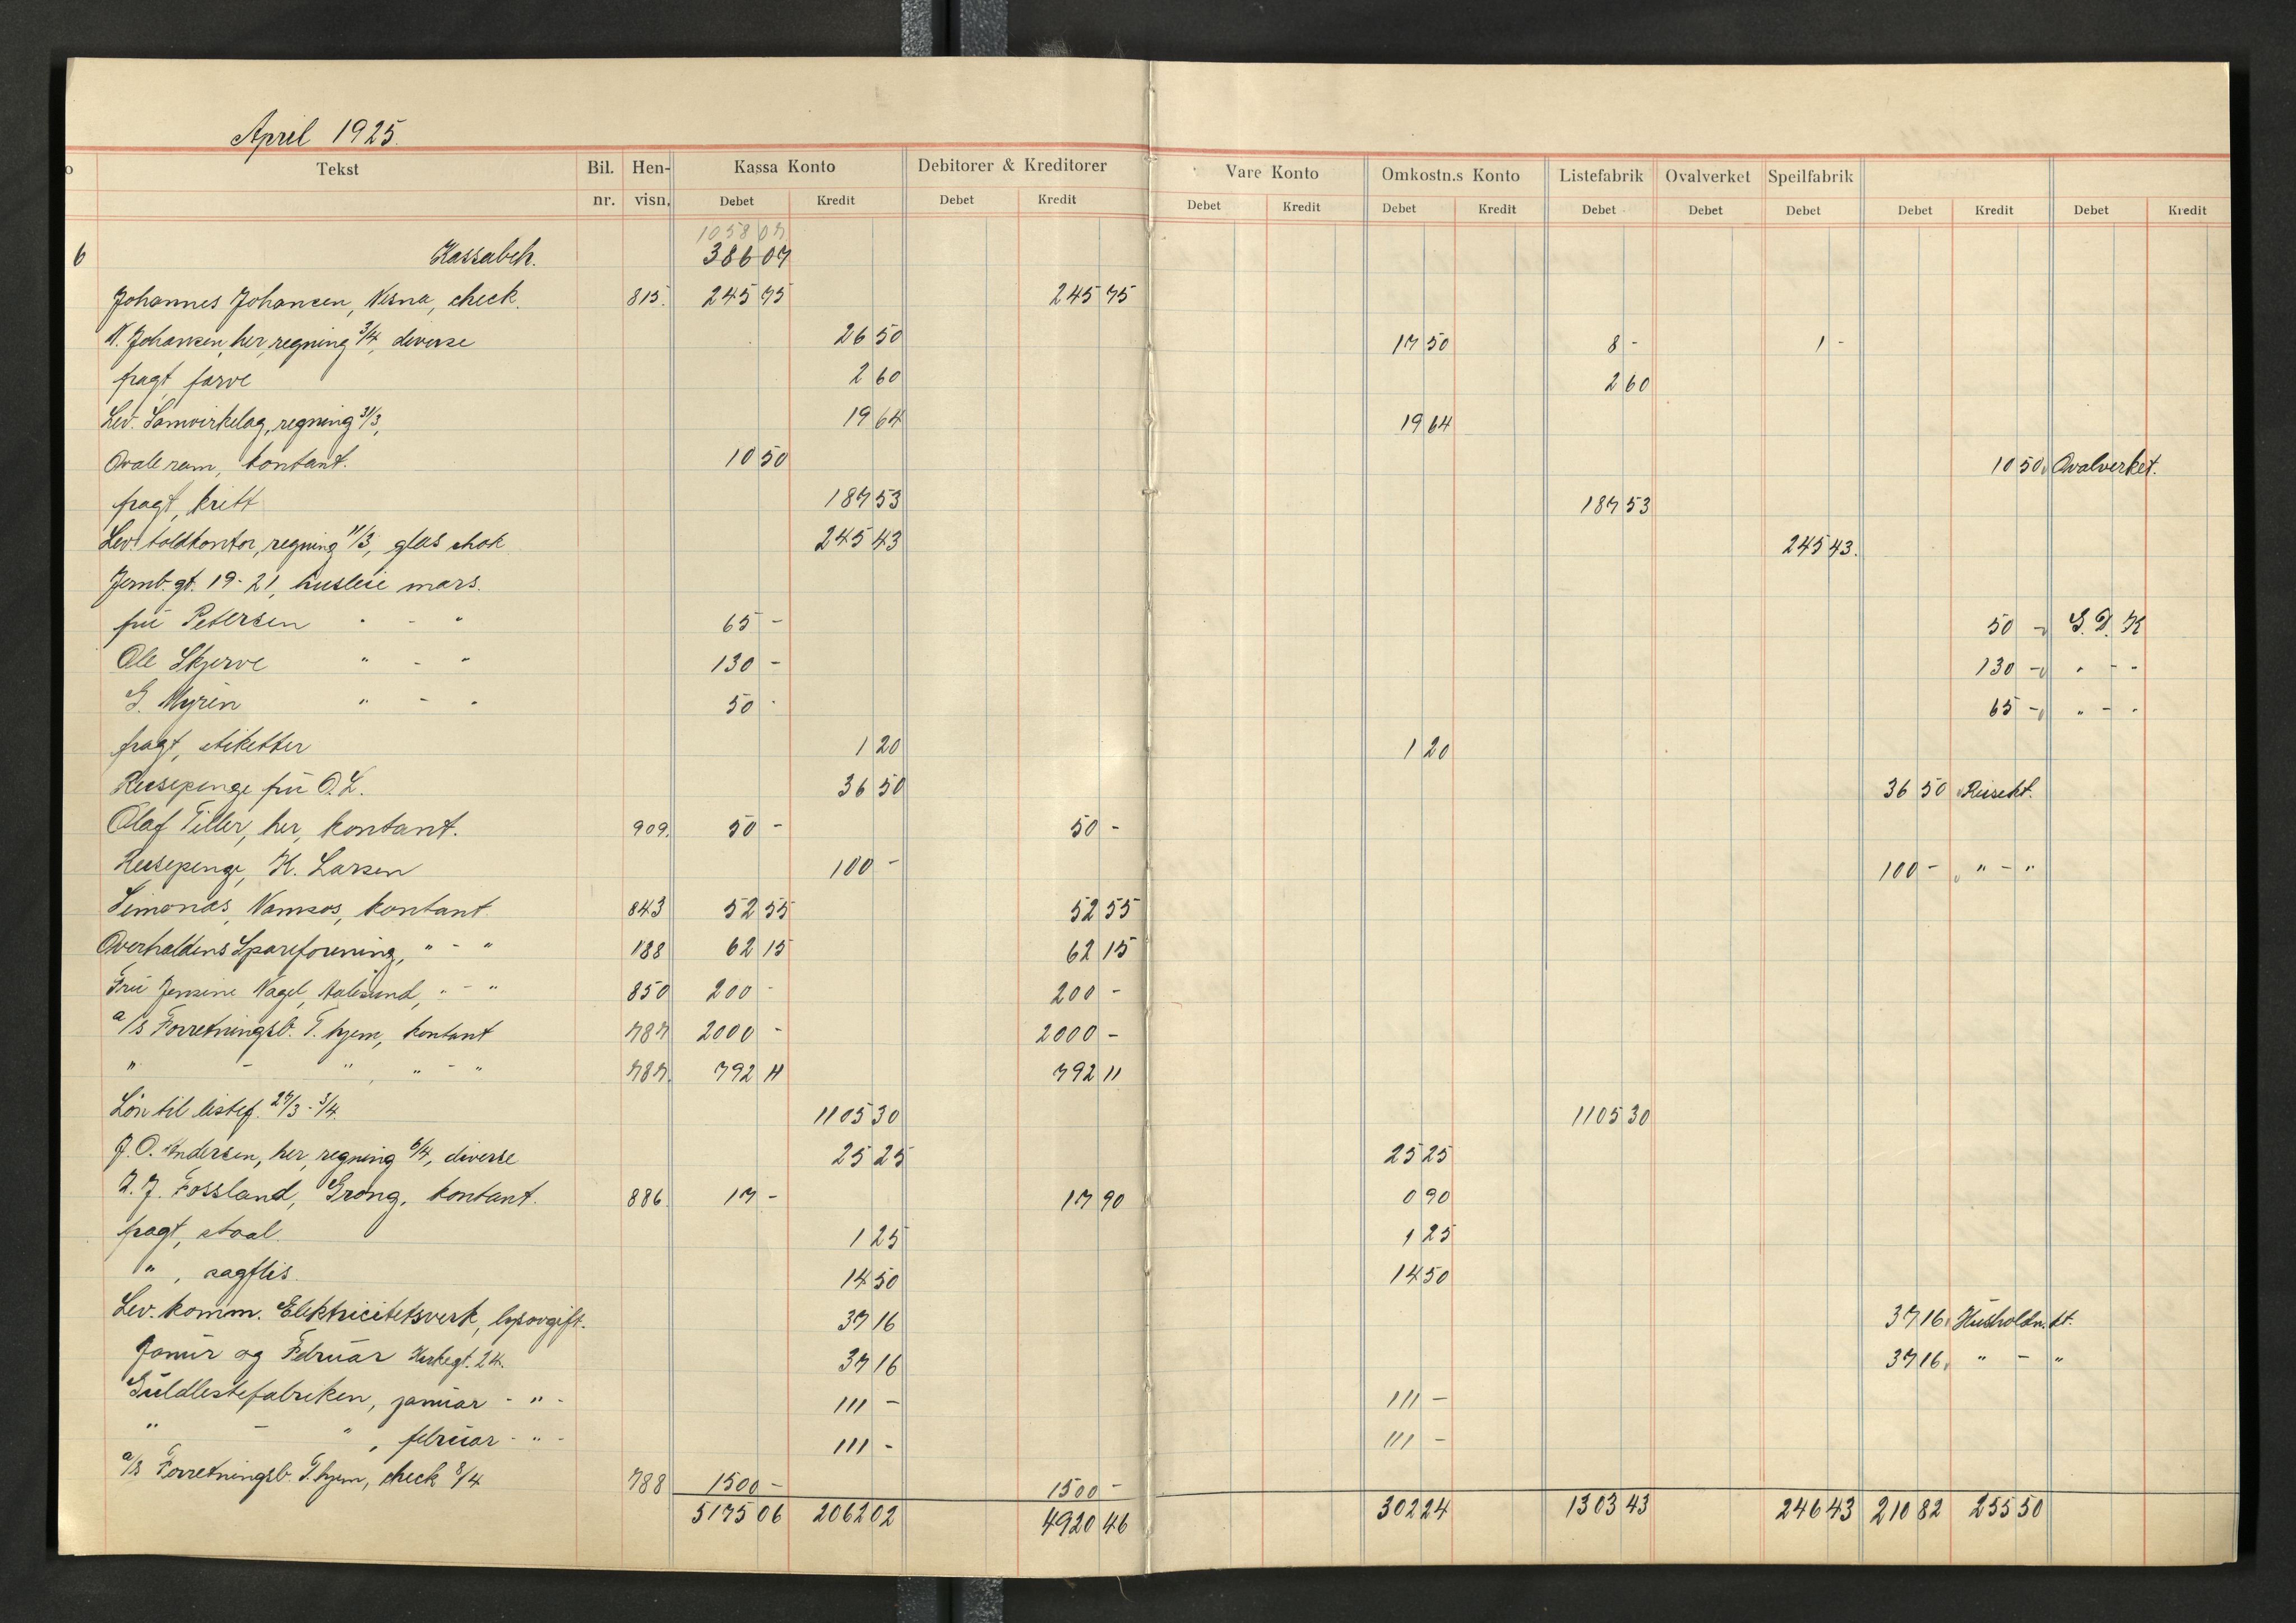 April 1925.
o Tekst Bil. Hen- Kassa Konto Debitorer & Kreditorer Vare Konto Omkostn.s Konto Listefabrik Ovalverket Speilfabrik
nr. visn. Debet Kredit Debet Kredit Debet Kredit Debet Kredit Debet Debet Debet Debet Kredit Debet Kredit
1058 07
6 Kassabeh. 386 07
Johannes Johansen, Nesna, check. 815. 245 75 245 75
N. Johansen, her, regning 3/4, diverse 26 50 17 50 8 - 1 -
fragt, farve 2 60 2 60
Lev. Samvirkelag, regning 31/3, 19 64 19 64
Ovale ram, kontant. 10 50 10 50 Ovalverket.
fragt, kritt 187 53 187 53
Lev. toldkontor, regning 11/3, glas 245 43 245 43.
Jernb. gt. 19-21, husleie mars.
frú Petersen " - " 65 - 50 - G. D. K
Ole Skjerve " - " 130 - 130 - " - "
G. Myrén " - " 50 - 65 - " - "
fragt, etiketter 1 20 1 20
Reisepenge frú O. L. 36 50 36 50 Reisekt.
Olaf Tiller, her, kontant. 909. 50 - 50 -
Reisepenge, K. Larsen 100 - 100 - " - "
Simonas, Namsos, kontant 843 52 55 52 55
Overhaldens Spareforening, " - " 188 62 15 62 15
Frú Jensine Nagel, Aalesund, " - " 850 200 - 200 -
a/s Forretningsb. T.hjem, kontant 787 2000 - 2000 -
" - " , " - " 787. 792 11 792 11
Lön til listef. 27/3 - 3/4. 1105 30 1105 30
J. O. Andersen, her, regning 6/4, diverse 25 25 25 25
Fossland, Grong, kontant. 886. 17 - 17 90 0 90
fragt, staal. 1 25 1 25
" , sagflis. 14 50 14 50
Lev. komm. Elektricitetsverk, lysavgift. 37 16 37 16 Húsholdn. kt.
Janúr og Februar Kirkegt. 24. 37 16 37 16 " - "
Gúldlistefabriken, janúar - " - 111 - 111 -
" - " , februar - " - 111 - 111 -
a/s Forretningsb. T.hjem, check 8/4 788 1500 - 1500 -
5175 06 2062 02 4920 46 302 24 1303 43 246 43 210 82 255 50